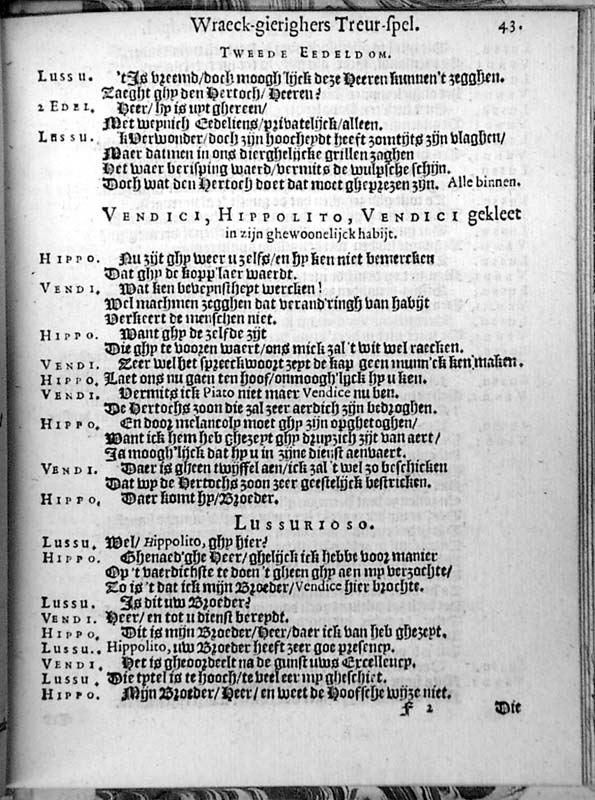 Wraeck-gierighers Treur-spel. 43.
TWEEDE EEDELDOM.
LUSSU. 'tIs vreemd/doch moogh'lijck deze Heeren kunnen't zegghen.
Zaeght ghy den Hertoch/Heeren?
2 EDEL. Heer/ hy is uyt ghereen/
Met weynich Eedeliens/privatelijck/alleen.
LUSSU. kVerwonder/doch zijn hoocheydt heeft zomtijts zijn vlaghen/
Maer datmen in ons dierghelijcke grillen zaghen
Het waer berisping waerd/vermits de wulpsche schijn.
Doch wat den Hertoch doet dat moet gheprezen zijn. Alle binnen.
VENDICI, HIPPOLITO, VENDICI gekleet
in zijn ghewoonelijck habijt.
HIPPO. Nu zijt ghy weer u zelfs/en hy ken niet bemercken
Dat ghy de kopp'laer waerdt.
VENDI. Wat ken beveynstheyt wercken!
Wel machmen zegghen dat verand'ringh van habijt
Verkeert de menschen niet.
HIPPO. Want ghy de zelfde zijt
Die ghy te vooren waert/ons mick zal 't wit wel raecken.
VENDI. Zeer wel het spreeckwoort zeyt de kap geen munn'ck ken maken.
HIPPO. Laet ons nu gaen ten hoof/onmoogh'lijck hy u ken.
VENDI. Vermits ick Piato niet maer Vendice nu ben.
De Hertochs zoon die zal zeer aerdich zijn bedroghen.
HIPPO. En door melancoly moet ghy zijn opghetoghen/
Want ick hem heb ghezeyt ghy druyzich zijt van aert/
Ja moogh'lijck dat hy u in zijne dienst aenvaert.
VENDI. Daer is gheen twyffel aen/ick zal 't wel zo beschicken
Dat wy de Hertochs zoon zeer geestelijck bestricken.
HIPPO. Daer komt hy/Broeder.
LUSSURIOSO.
LUSSU. Wel/Hippolito, ghy hier?
HIPPO. Ghenaed'ghe Heer/ghelijck ick hebbe voor manier
Op 't vaerdichste te doen 't gheen ghy aen my verzochte/
Zo is 't dat ick mijn Broeder/Vendice hier brochte.
LUSSU. Is dit uw Broeder?
VENDI. Heer/en tot u dienst bereydt.
HIPPO. Dit is mijn Broeder/Heer/daer ick van heb ghezeyt.
LUSSU. Hippolito, uw Broeder heeft zeer goe presency.
VENDI. Het is gheoordeelt na de gunst uws Excellency.
LUSSU. Die tytel is te hooch/te veel eer my gheschiet.
HIPPO. Mijn Broeder/Heer/en weet de Hoofsche wijze niet.
F 2 Die